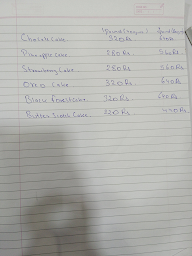 Chocolate Cake 320Rs
Pineapple Cake 280Rs 560Rs
Strawberry Cake 280Rs 560Rs
Oreo Cake 320Rs 640Rs
Black Forest Cake 320Rs 640Rs
Butter Scotch Cake 220Rs 440Rs